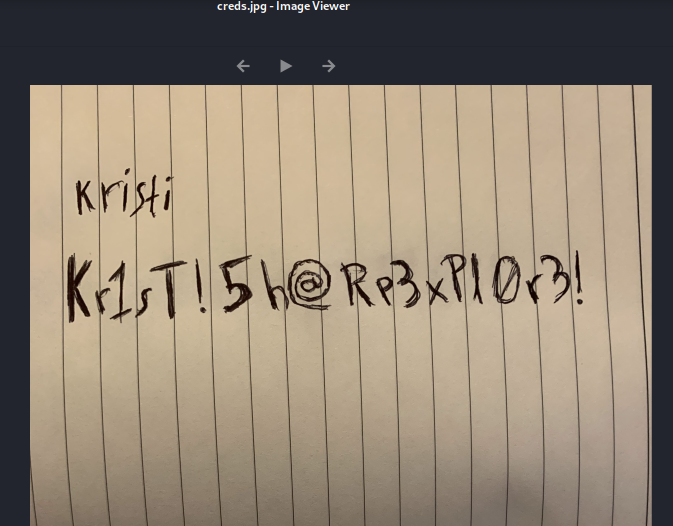 creds.jpg - Image Viewer
kristi
Kr1sT!5h@Rp3xPl0r3!